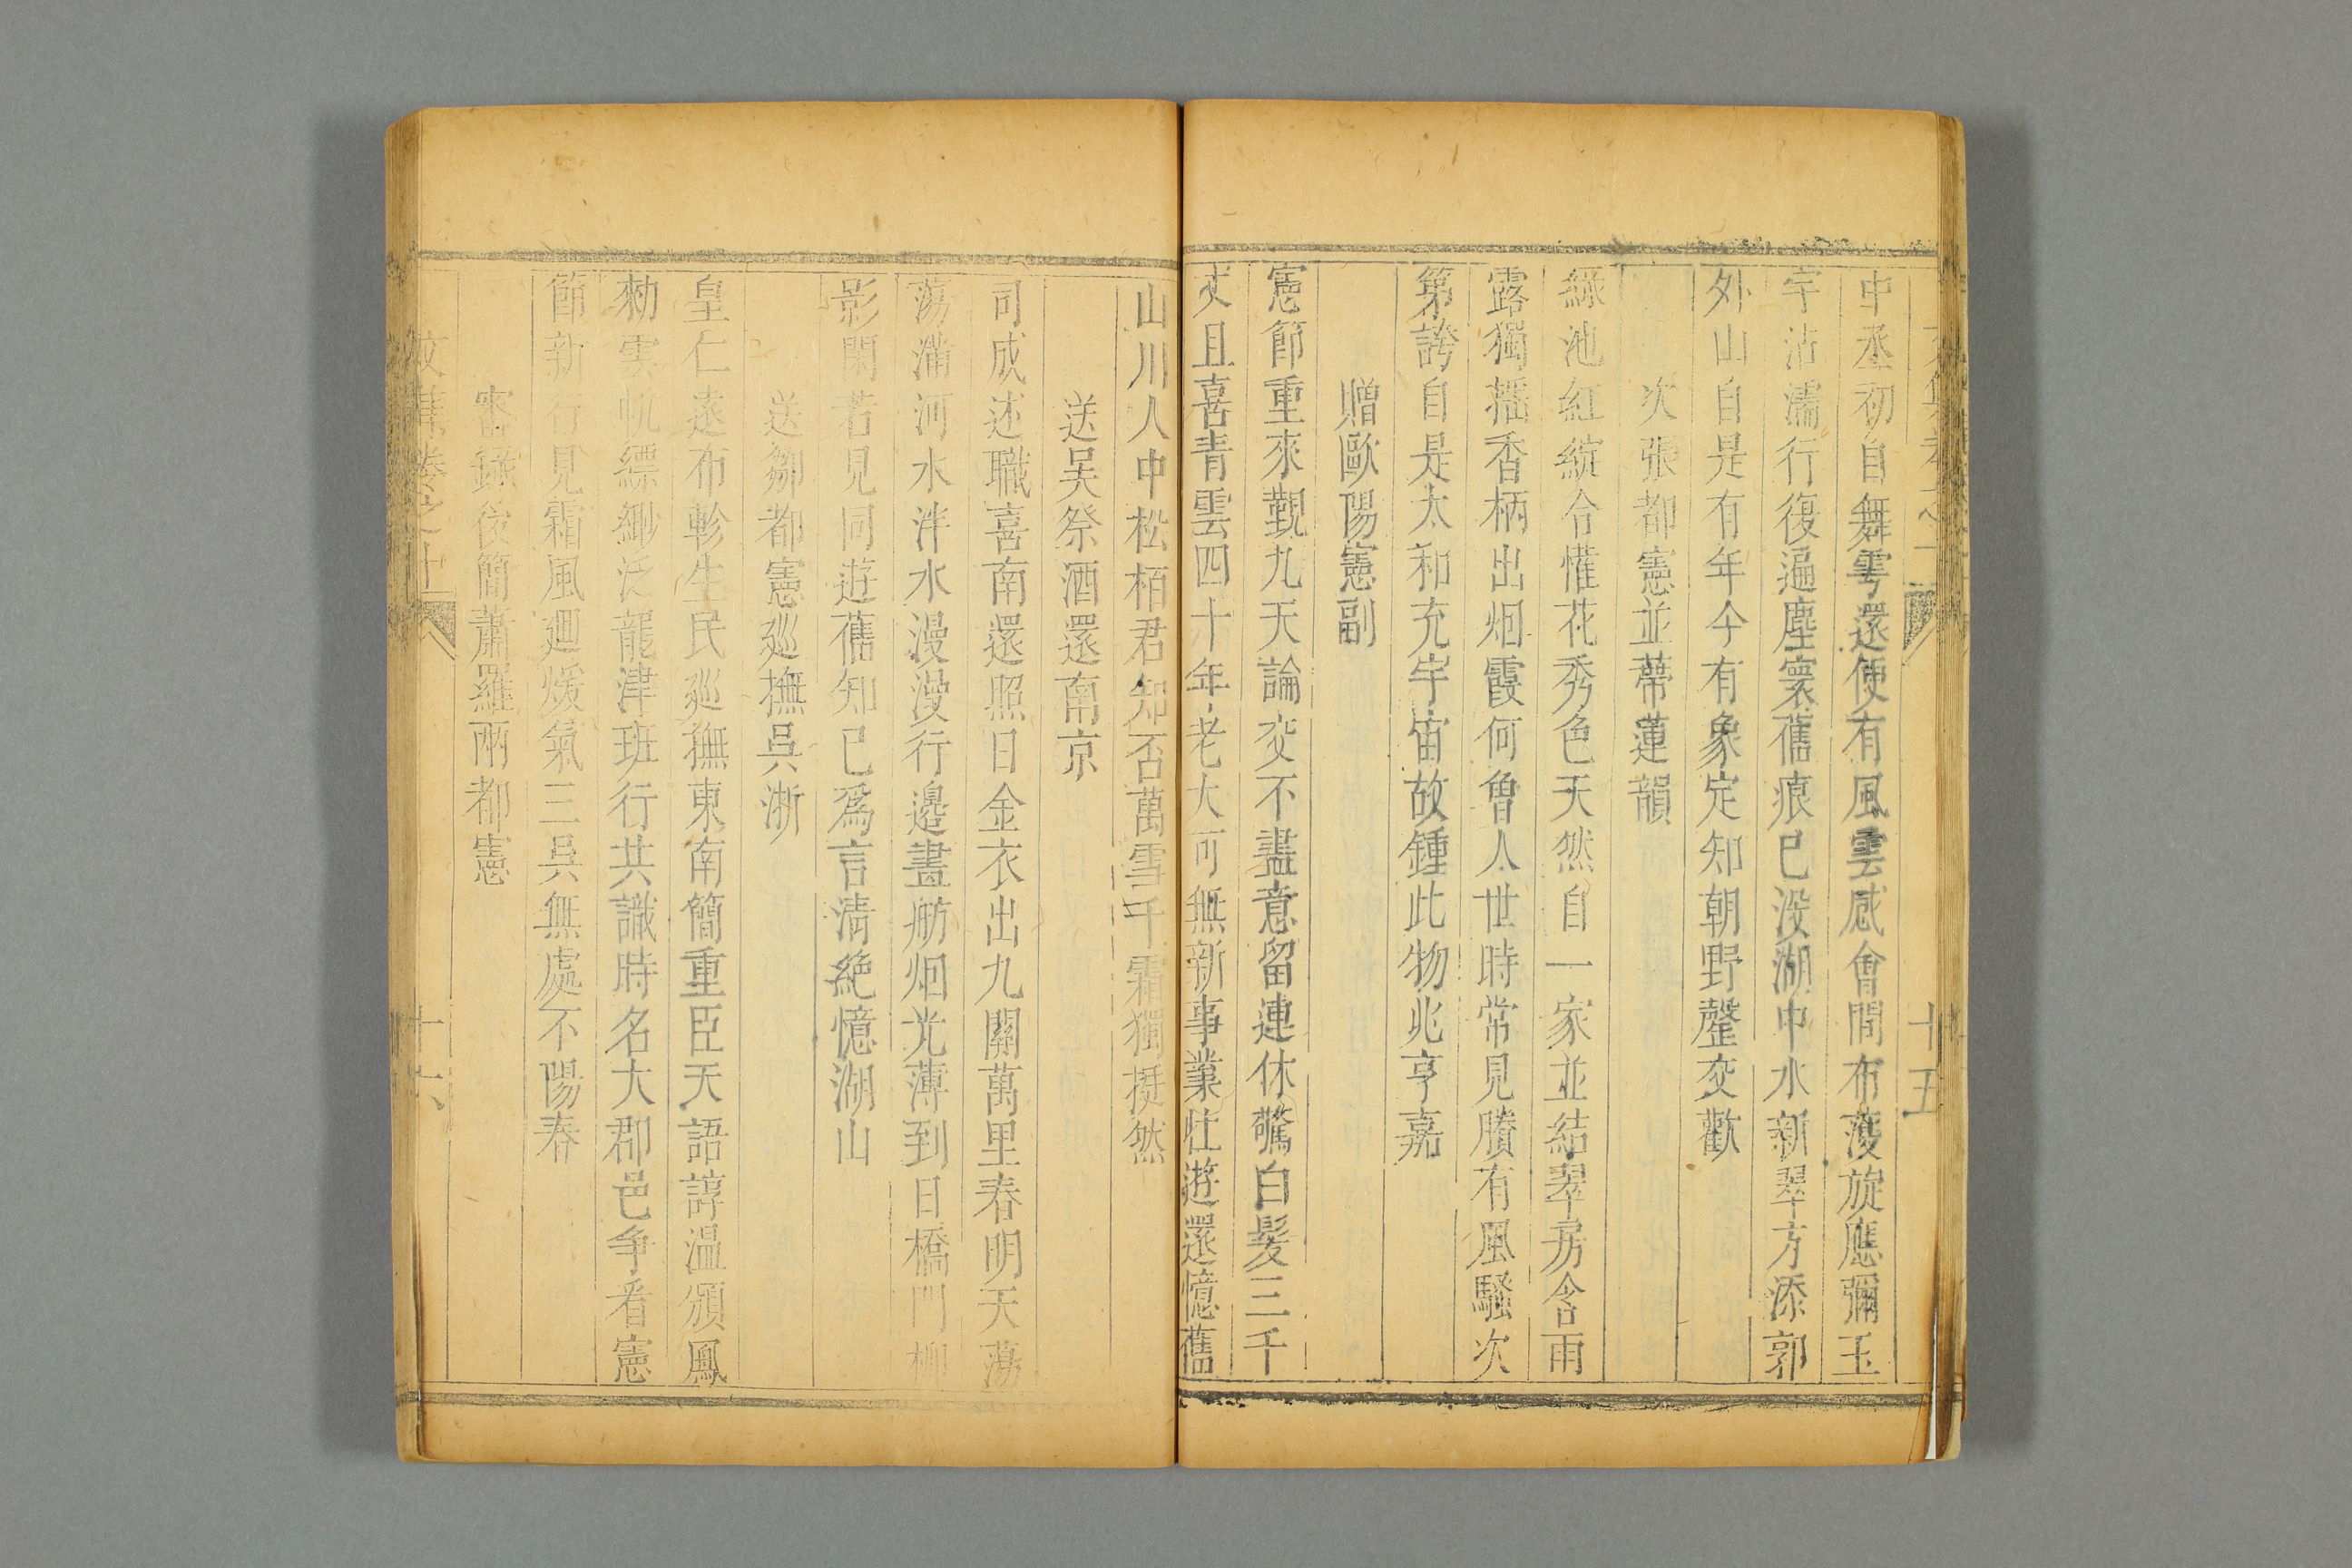 十五
中丞初自舞雩還便有風雲感會間布濩旋應彌玉
宇沾濡行復遍塵寰舊痕已没湖中水新翠方添郭
外山自是有年今有象定知朝野罄交歡
次張都憲並蒂蓮韻
綠池紅綻合懽花秀色天然自一家並結翠房含雨
露獨摇香柄出烟霞何曾人世時常見賸有風騷次
第誇自是太和充宇宙故鍾此物兆亨嘉
贈歐陽憲副
憲節重來覲九天論交不盡意留連休驚白髪三千
丈且喜青雲四十年老大可無新事業壯遊還憶舊
山川人中松栢君知否萬雪千霜獨挺然
送吴祭酒還南京
司成述職喜南還照日金衣出九關萬里春明天蕩
蕩滿河水泮水漫漫行邉畫舫烟光薄到日橋門柳
影閑若見同遊舊知已爲言清絶憶湖山
送鄒都憲廵撫呉浙
皇仁遠布軫生民廵撫東南簡重臣天語諄温頒鳳
勑雲帆縹緲泛龍津班行共識時名大郡邑争看憲
節新行見霜風廻煖氣三呉無處不陽春
審録後簡蕭羅兩都憲
文集卷之十
十六